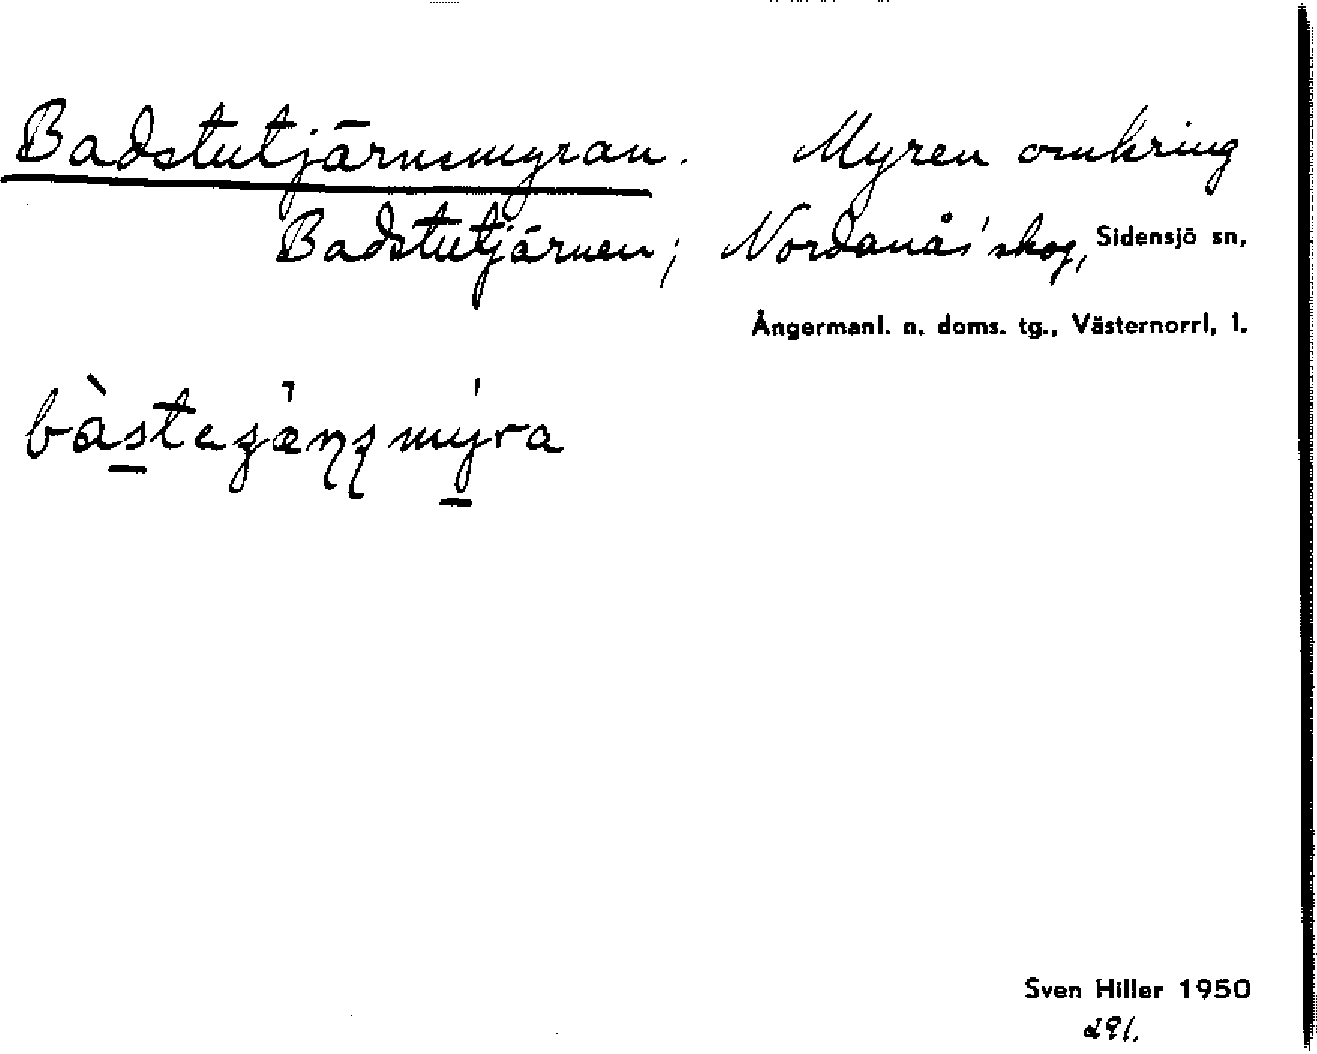 Badstutjärnsmyran. Myren omkring
Badstutjärnen; Nordanås' skog, Sidensjö sn,
Ångermanl. n. doms. tg., Västernorrl, l.
Sven Hiller 1950
291.